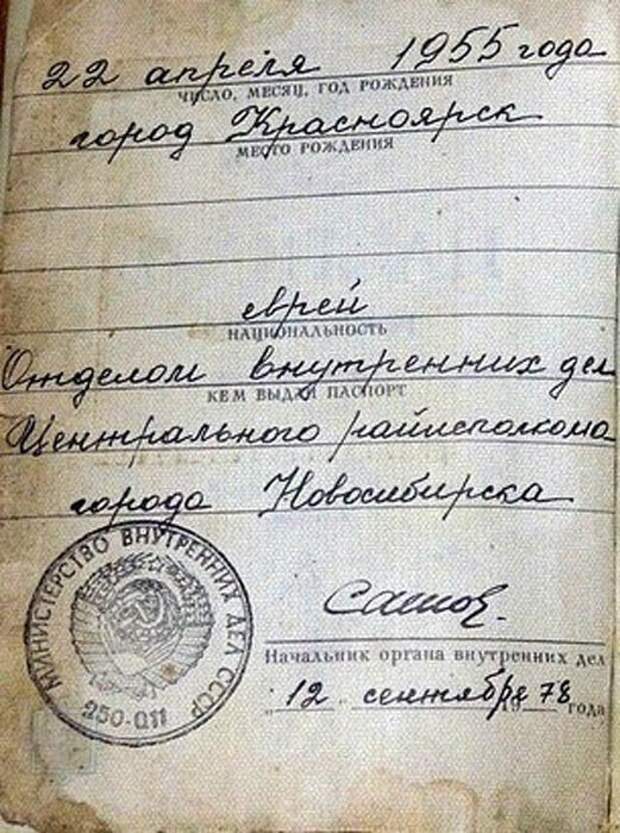 22 апреля 1955 года
ЧИСЛО, МЕСЯЦ, ГОД РОЖДЕНИЯ
город Красноярск
МЕСТО РОЖДЕНИЯ
еврей
НАЦИОНАЛЬНОСТЬ
Отделом внутренних дел
КЕМ ВЫДАН ПАСПОРТ
Центрального райисполкома
города Новосибирска
МИНИСТЕРСТВО ВНУТРЕННИХ ДЕЛ СССР
250-011
Начальник органа внутренних дел
"12" сентября 1978 года